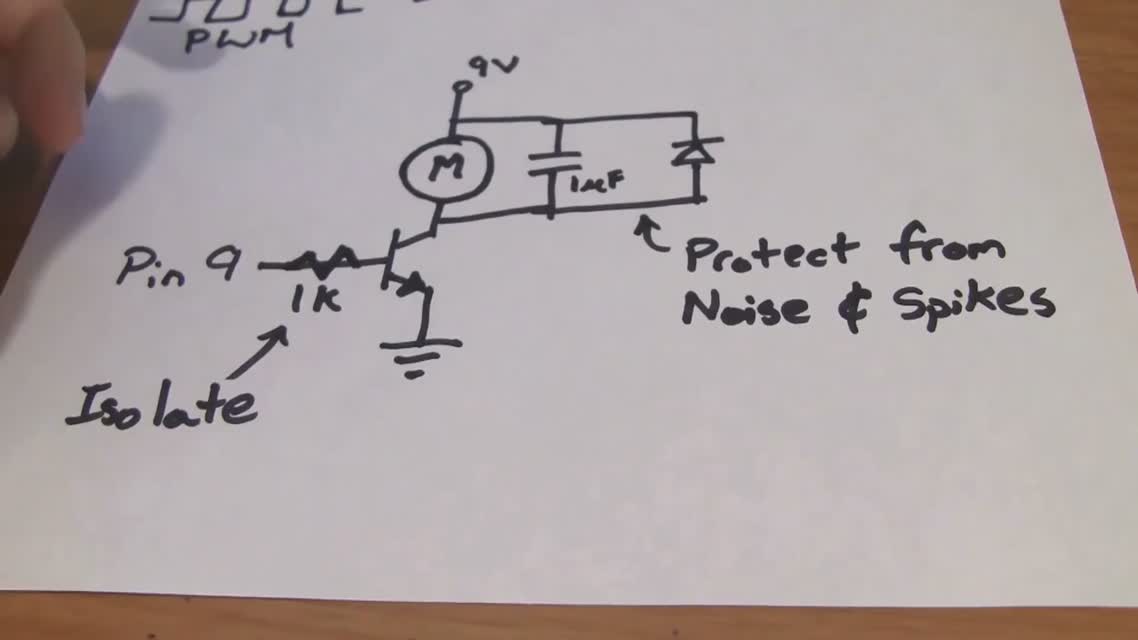 PWM
9V
M
1uF
Pin 9
1K
Protect from
Noise & Spikes
Isolate